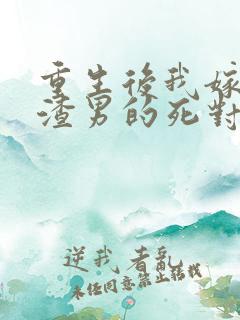 重生後我嫁
渣男的死對
逆我者亂
未经同意禁止转载